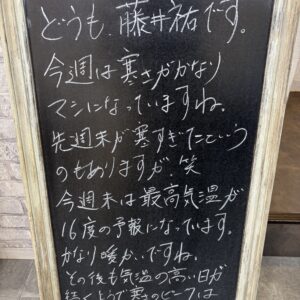 どうも、藤井祐です。
今週は寒さがかなり
マシになっていますね。
先週末が寒すぎたという
のもありますが。笑
今週末は最高気温が
16度の予報になっています。
かなり暖かいですね。
その後も気温の高い日が
続くようで寒さのピークは